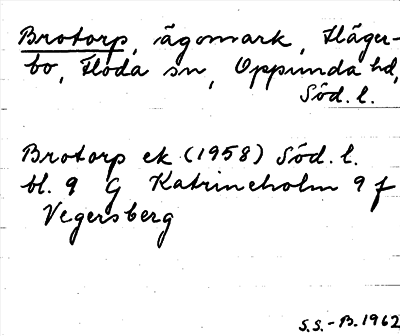 Brotorp, ägomark, Häger-
bo, Floda sn, Oppunda hd,
Söd. l.
Brotorp ek (1958) Söd. l.
bl. 9 G Katrineholm 9 f
Vegersberg
S.S.-B. 1962